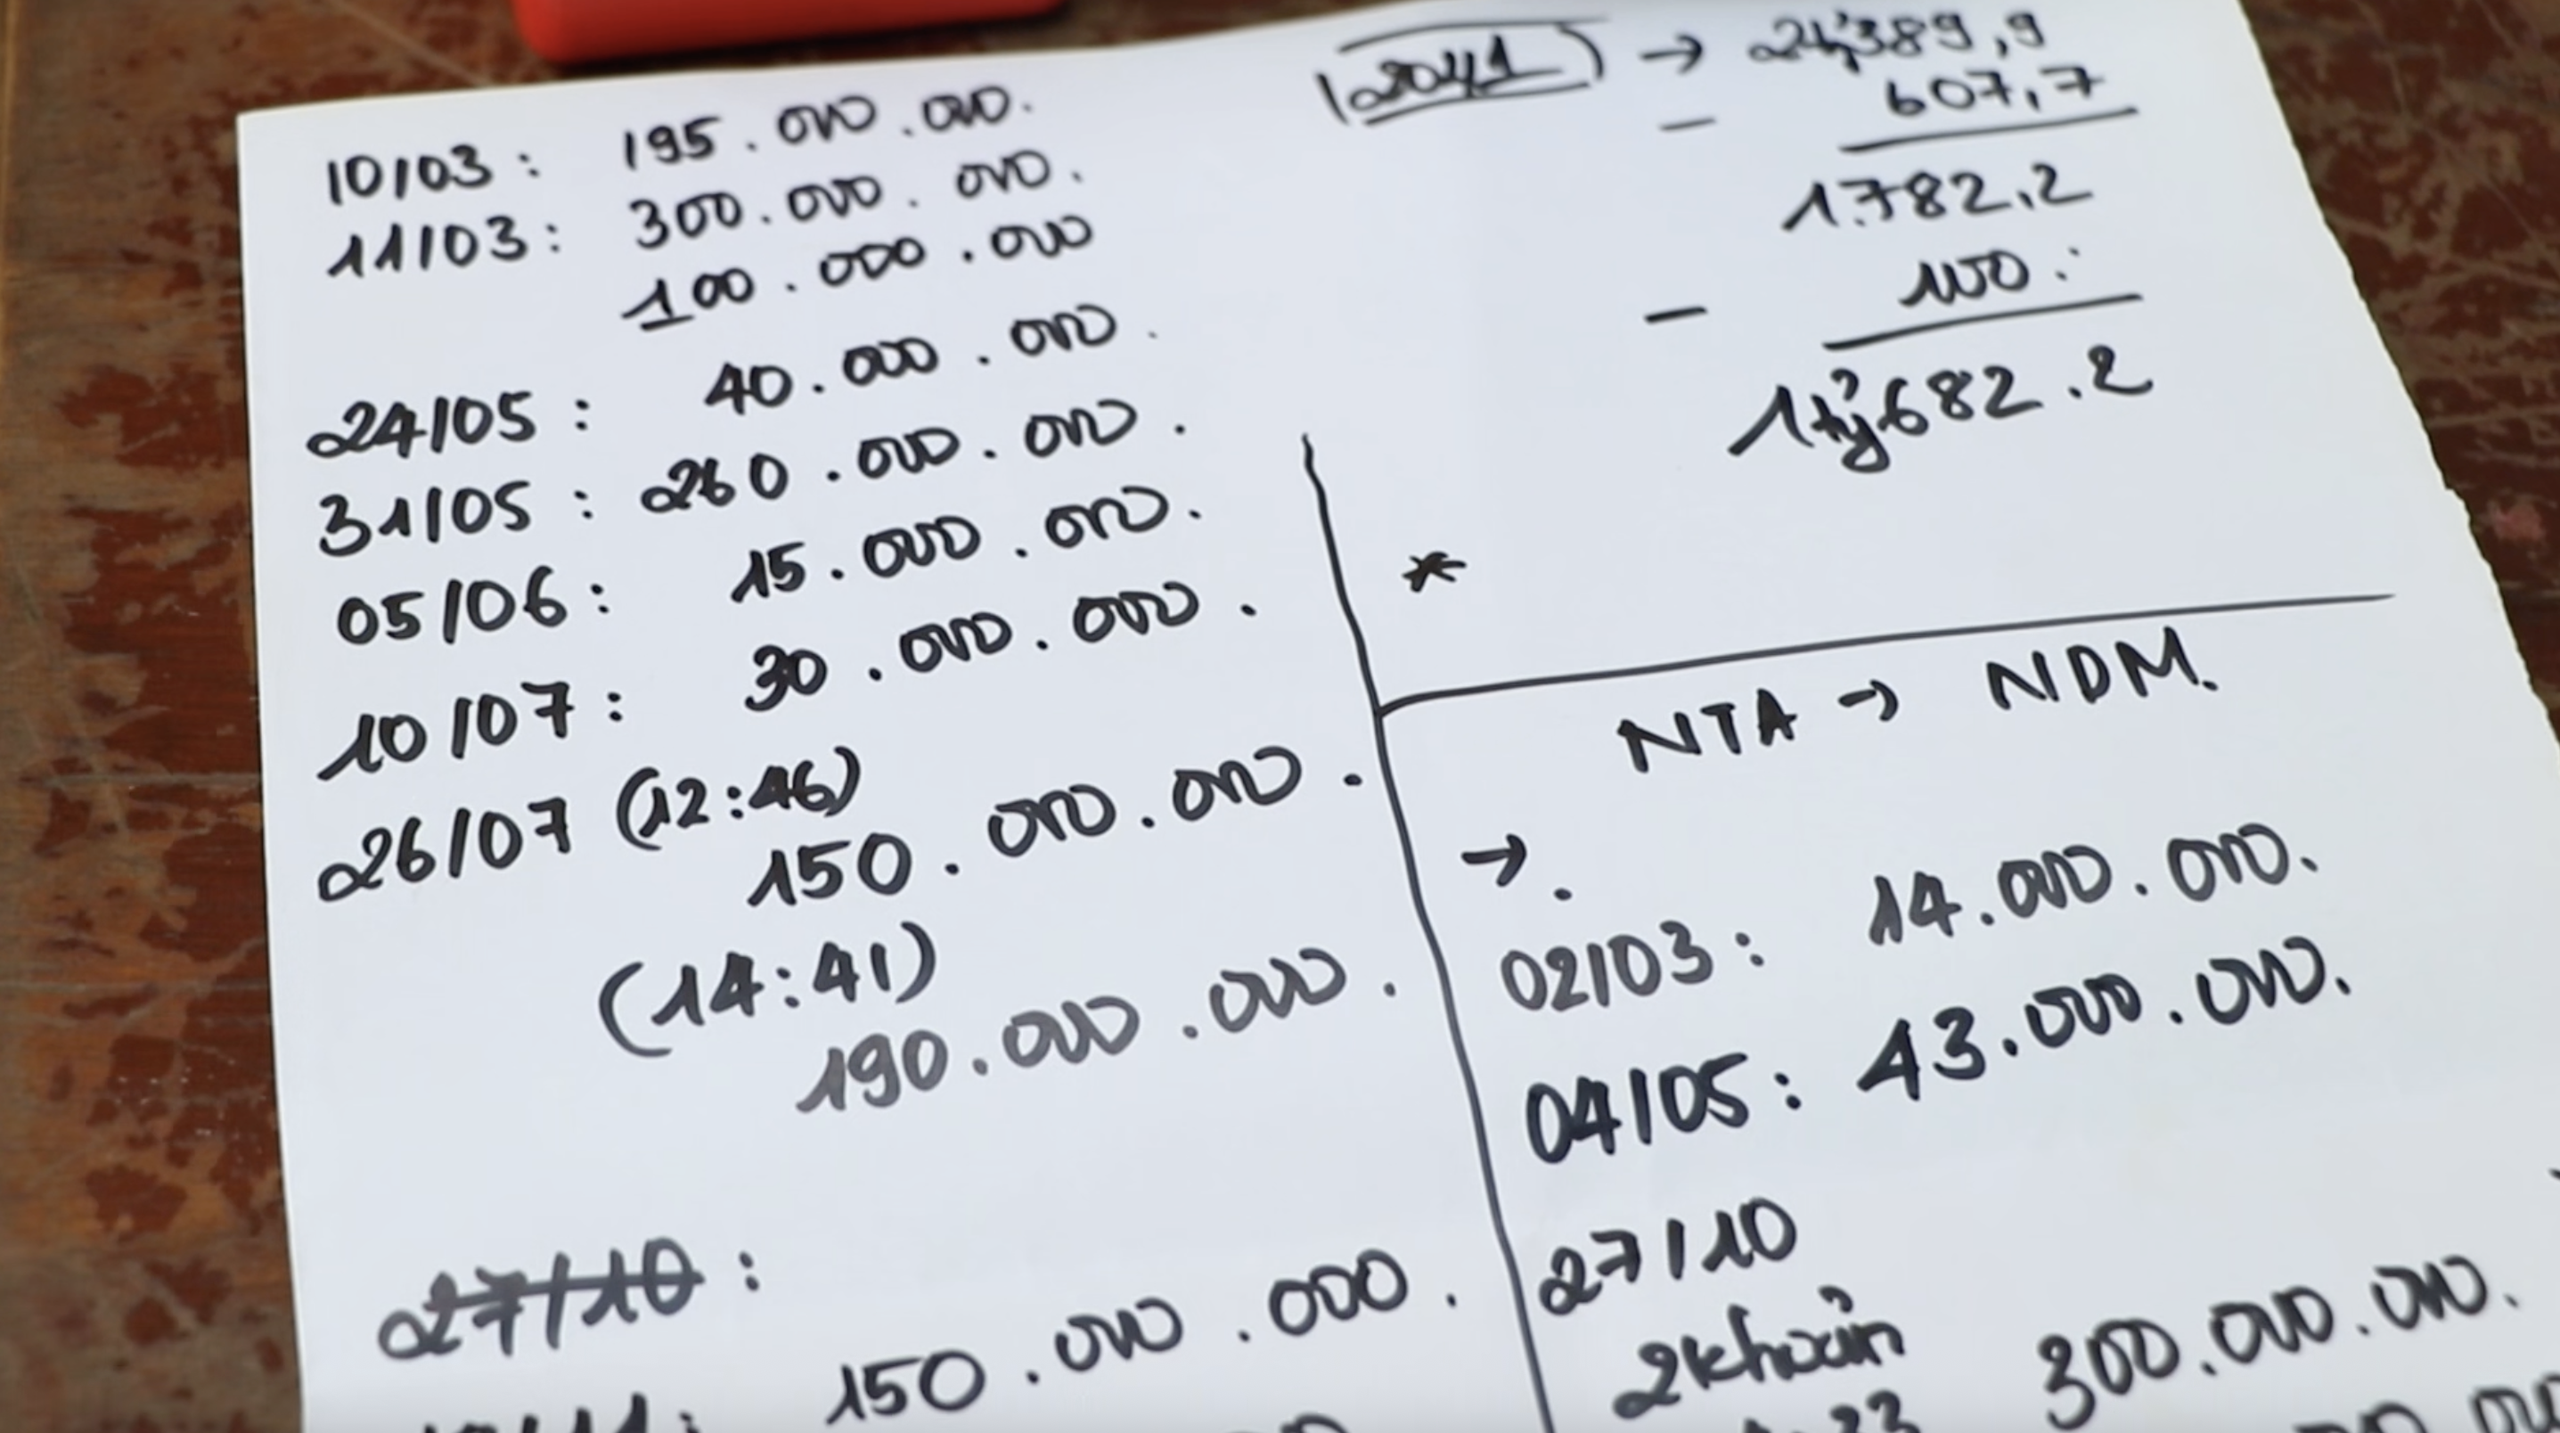 10/03: 195.000.000.
11/03: 300.000.000.
100.000.000
24/05: 40.000.000.
31/05: 260.000.000.
05/06: 15.000.000.
10/07: 30.000.000.
26/07 (12:46)
150.000.000.
(14:41)
190.000.000.
27/10:
150.000.000.
→ 2tỷ389,9
- 607,7
1.782,2
- 100.
1tỷ682.2
*
NTA → NDM.
→.
02/03: 14.000.000.
04/05: 43.000.000.
27/10
2 khoản
300.000.000.